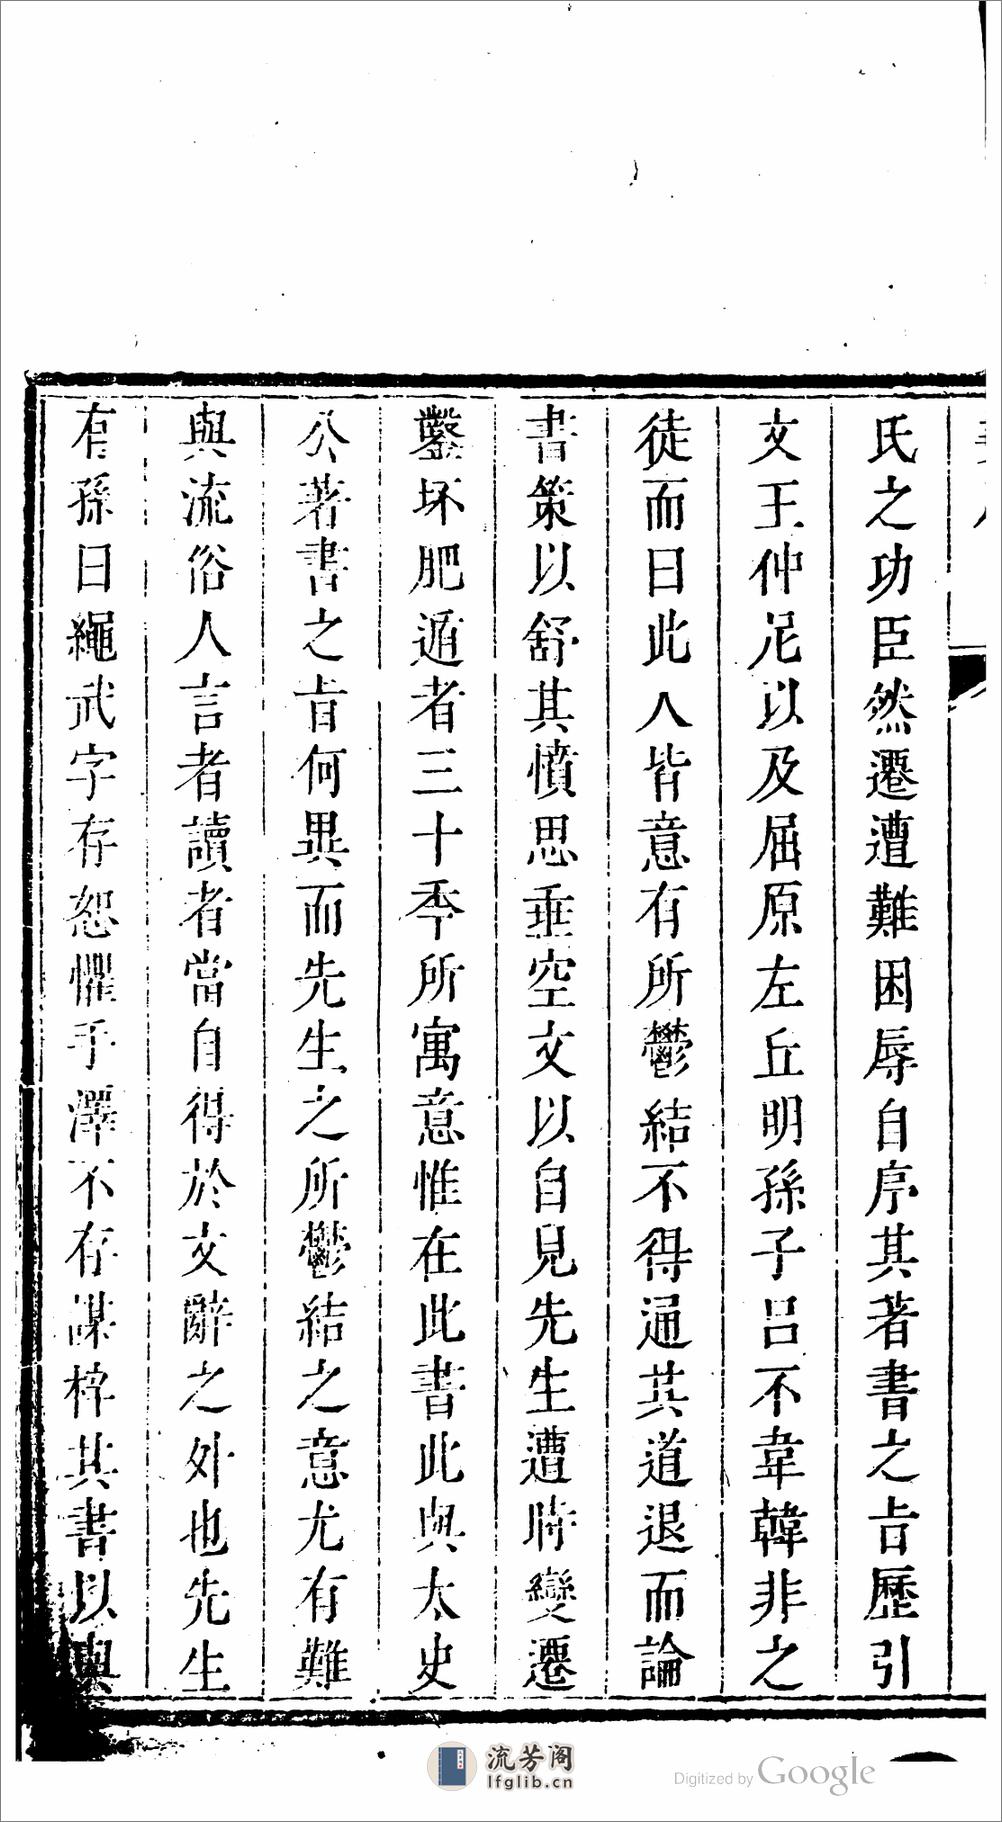 氏之功臣然遷遭難困辱自序其著書之㫖歷引
文王仲尼以及屈原左丘明孫子呂不韋韓非之
徒而曰此人皆意有所鬱結不得通其道退而論
書策以舒其憤思垂空文以自見先生遭時變遷
鑿坏肥遁者三十季所寓意惟在此書此與太史
公著書之㫖何異而先生之所鬱結之意尤有難
與流俗人言者讀者當自得於文辭之外也先生
有孫曰繩武字存恕懼手澤不存謀梓其書以與
流芳阁
lfglib.cn
Digitized by Google